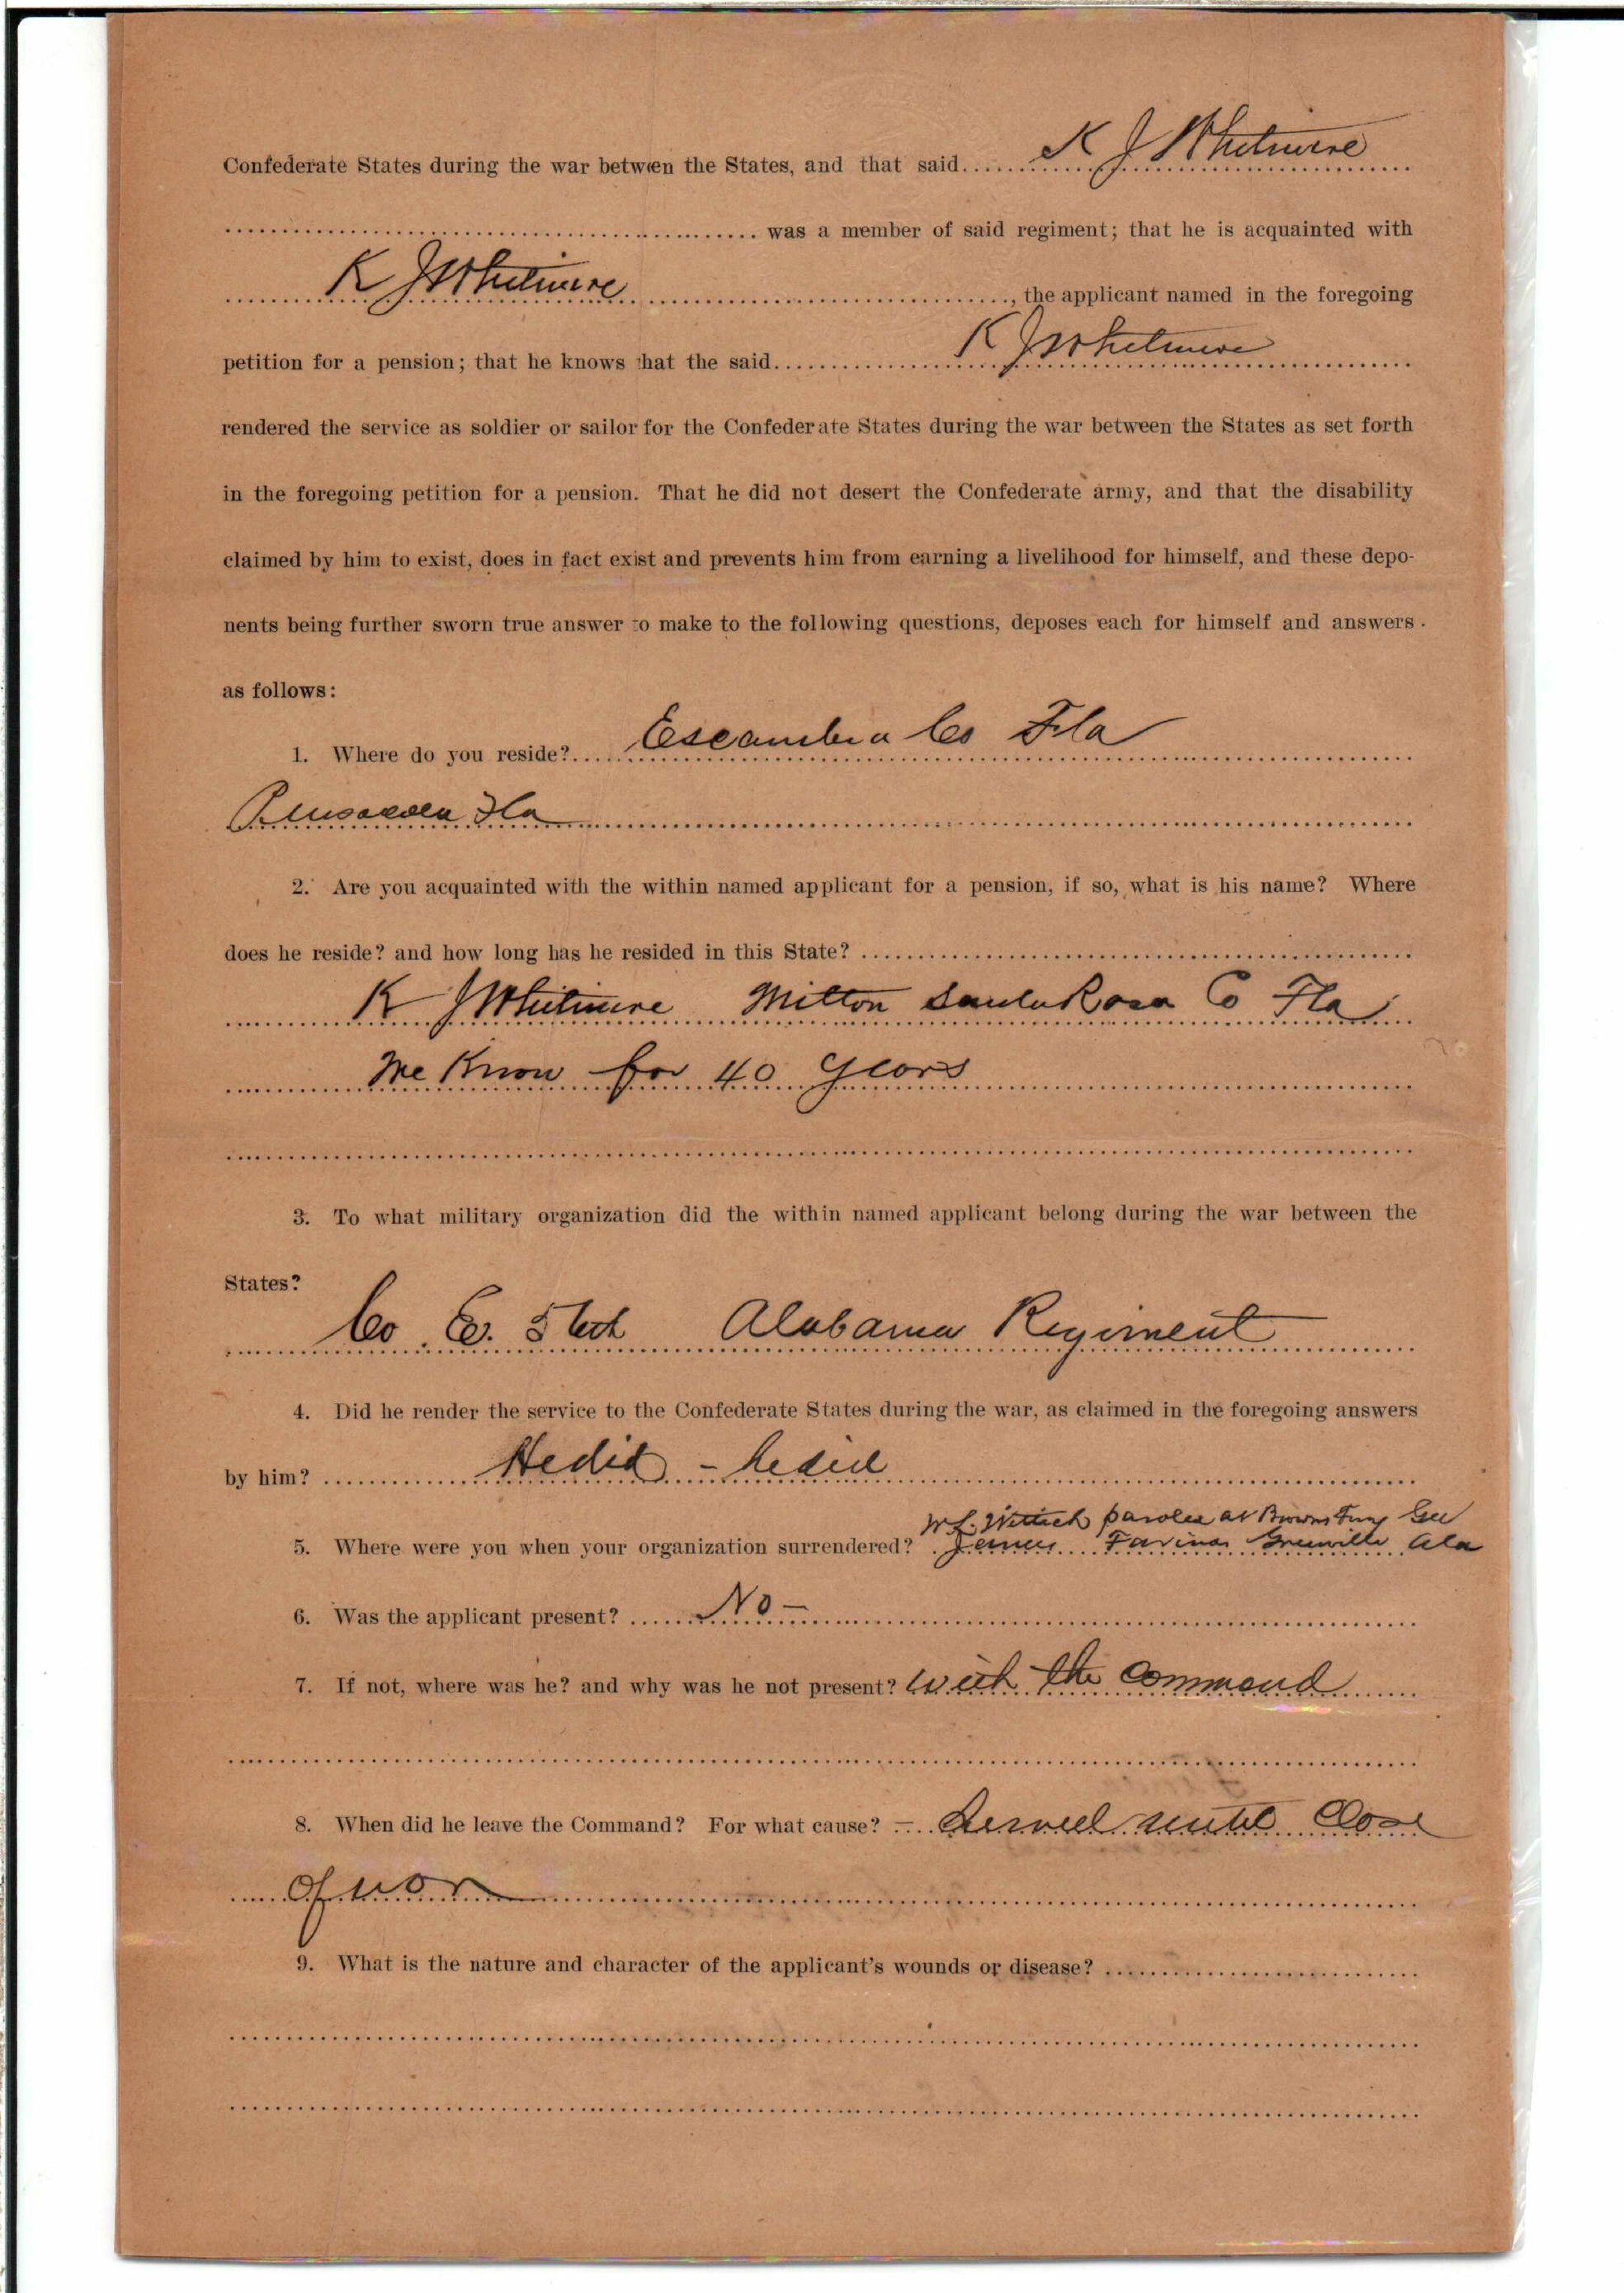 Confederate States during the war between the States, and that said K J Whitmire
was a member of said regiment; that he is acquainted with
K J Whitmire, the applicant named in the foregoing
petition for a pension; that he knows that the said K J Whitmire
rendered the service as soldier or sailor for the Confederate States during the war between the States as set forth
in the foregoing petition for a pension. That he did not desert the Confederate army, and that the disability
claimed by him to exist, does in fact exist and prevents him from earning a livelihood for himself, and these depo-
nents being further sworn true answer to make to the following questions, deposes each for himself and answers
as follows:
1. Where do you reside? Escambia Co Fla
Pensacola Fla
2. Are you acquainted with the within named applicant for a pension, if so, what is his name? Where
does he reside? and how long has he resided in this State?
K J Whitmire Milton Santa Rosa Co Fla
We Know for 40 Years
3. To what military organization did the within named applicant belong during the war between the
States?
Co. E. Alabama Regiment
4. Did he render the service to the Confederate States during the war, as claimed in the foregoing answers
by him? He did - he did
W L Wittich paroled at Browns
5. Where were you when your organization surrendered? Farinas Greenville Ala
6. Was the applicant present? No -
7. If not, where was he? and why was he not present? with the command
8. When did he leave the Command? For what cause? - Served until Close
of war
9. What is the nature and character of the applicant's wounds or disease?